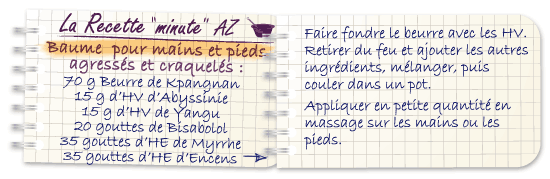 La Recette "minute" AZ
Baume pour mains et pieds
agressés et craquelés :
70 g Beurre de Kpangnan
15 g d'HV d'Abyssinie
15 g d'HV de Yangu
20 gouttes de Bisabolol
35 gouttes d'HE de Myrrhe
35 gouttes d'HE d'Encens
Faire fondre le beurre avec les HV.
Retirer du feu et ajouter les autres
ingrédients, mélanger, puis
couler dans un pot.
Appliquer en petite quantité en
massage sur les mains ou les
pieds.